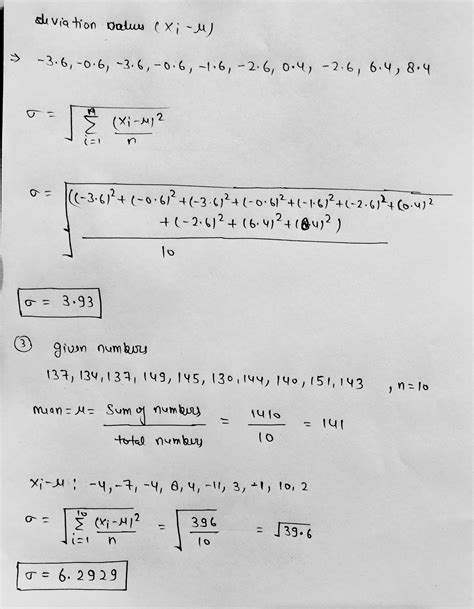 deviation values (xi-μ)
⇒ -3.6, -0.6, -3.6, -0.6, -1.6, -2.6, 0.4, -2.6, 6.4, 8.4
σ = √(Σ_{i=1}^{n} (xi-μ)²/n)
σ = √(((-3.6)²+(-0.6)²+(-3.6)²+(-0.6)²+(-1.6)²+(-2.6)²+(0.4)²
+(-2.6)²+(6.4)²+(8.4)²)
/10)
σ = 3.93
③ given numbers
137, 134, 137, 149, 145, 130, 144, 140, 151, 143 , n=10
mean = μ = Sum of numbers / total numbers = 1410/10 = 141
xi-μ : -4, -7, -4, 8, 4, -11, 3, -1, 10, 2
σ = √(Σ_{i=1}^{10} (xi-μ)²/n) = √(396/10) = √39.6
σ = 6.2929